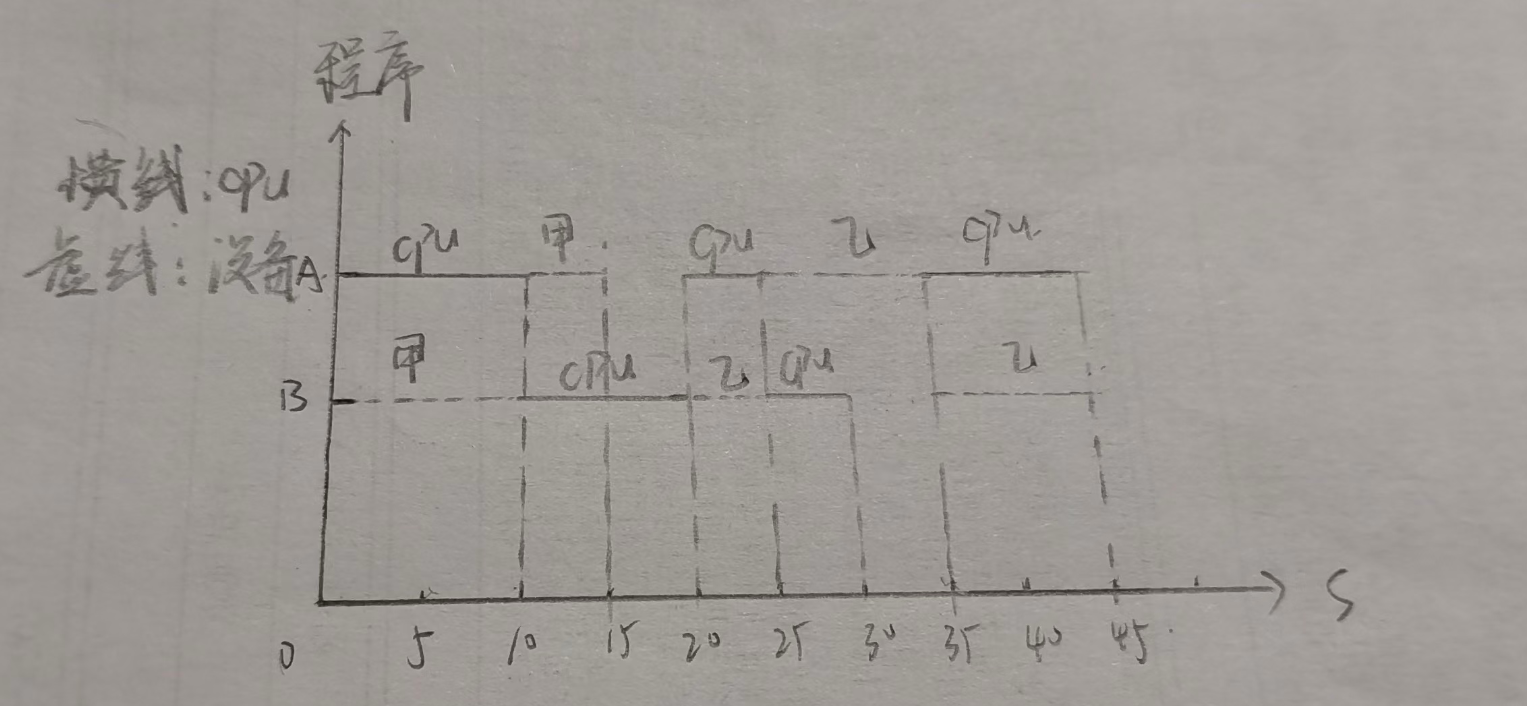 程序
横线:CPU
虚线:设备
CPU 甲 CPU 乙 CPU
A
甲 CPU 乙 CPU 乙
B
S
0 5 10 15 20 25 30 35 40 45